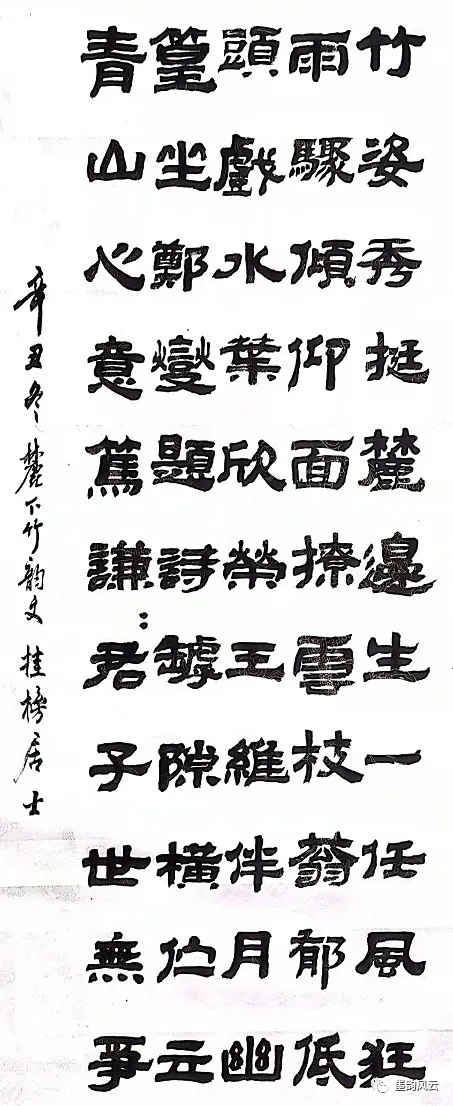 竹姿秀挺麓邊生一任風狂
雨驟傾仰面撩雲枝蓊郁低
頭戲水葉欣榮王維伴月幽
篁坐鄭燮題詩罅隙橫伫立
青山心意篤謙：君子世無爭
辛丑冬麓下竹韵文挂榜居士
墨韵风云